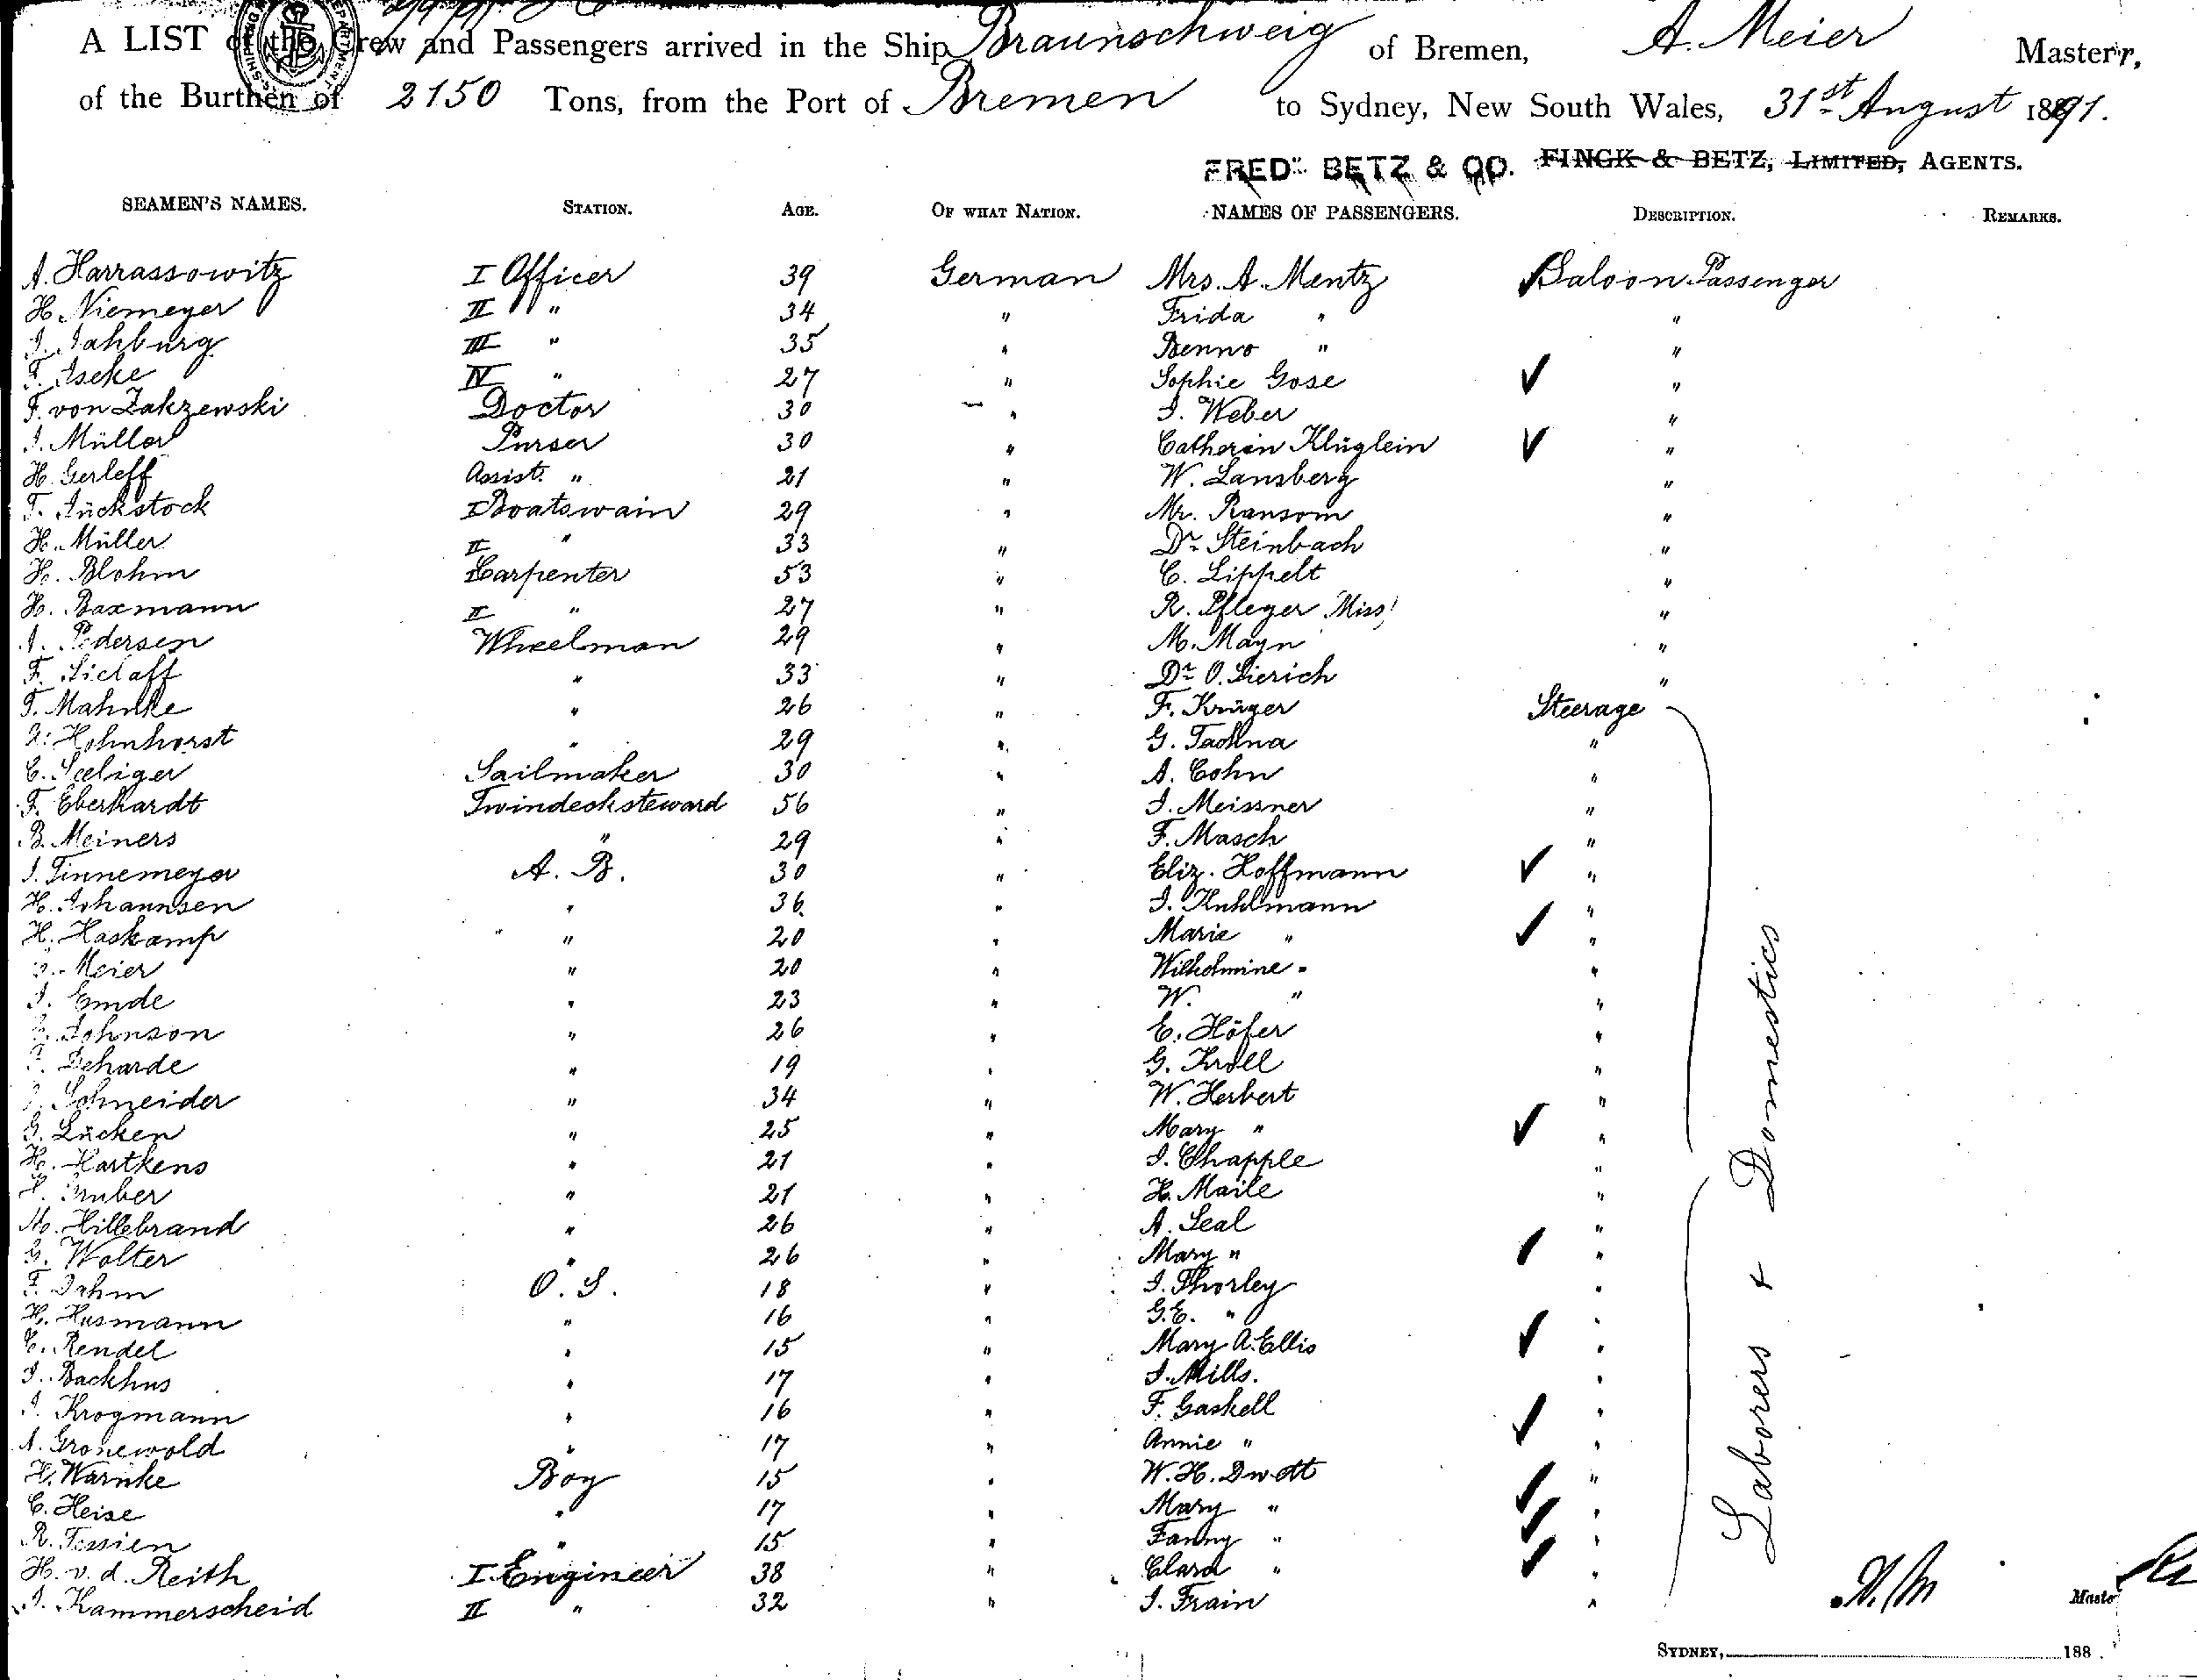 A LIST of the Crew and Passengers arrived in the Ship Braunschweig of Bremen, A. Meier Master,
of the Burthen of 2150 Tons, from the Port of Bremen to Sydney, New South Wales, 31st August 1891.
FREDK BETZ & CO. FINCK & BETZ, LIMITED, AGENTS.
SEAMEN'S NAMES. STATION. AGE. OF WHAT NATION. NAMES OF PASSENGERS. DESCRIPTION. REMARKS.
A. Harrassowitz I Officer 39 German Mrs. A. Mentz Saloon Passenger
H. Niemeyer II " 34 " Frida " "
Jahburg III " 35 " Benno " "
F. Iseke IV " 27 " Sophie Gose "
F. von Zakzewski Doctor 30 " I. Weber "
I. Müller Purser 30 " Catherin Klüglein "
H. Gerleff Assist. " 21 " W. Lansberg "
Tückstock I Boatswain 29 " Mr. Ransom "
H. Müller II " 33 " Dr. Steinbach "
H. Blohm Carpenter 53 " C. Lippelt "
H. Baxmann II " 27 " R. Pfleger Miss "
Pedersen Wheelman 29 " M. Mayn "
F. Sielaff " 33 " Dr. O. Sierich "
Mahnke " 26 " F. Krüger Steerage
Hohnhorst " 29 " G. "
C. Seeliger Sailmaker 30 " A. Cohn "
F. Eberhardt Twindecksteward 56 " I. Meissner "
B. Meiners " 29 " F. Masch "
I. Tinnemeyer A. B. 30 " Eliz. Hoffmann "
H. Johannsen " 36 " I. Kuhlmann "
H. Haskamp " 20 " Marie " "
Meier " 20 " Wilhelmine " "
I. Emde " 23 " W. " "
Johnson " 26 " E. Höfer "
Deharde " 19 " G. Kroll "
Schneider " 34 " W. Herbert "
G. Lücken " 25 " Mary " "
H. Hartkens " 21 " I. Chapple "
Gruber " 21 " H. Maile "
M. Hillebrand " 26 " A. Seal "
G. Wolter " 26 " Mary " "
F. Dahm O. S. 18 " I. Thorley "
H. Husmann " 16 " G.E. " "
C. Rendel " 15 " Mary A. Ellis "
I. Backhus " 17 " I. Mills. "
I. Krogmann " 16 " F. Gaskell "
A. Gronewold " 17 " Annie " "
H. Warnke Boy 15 " W. H. "
C. Heise " 17 " Mary " "
R. Tessien " 15 " Fanny " "
H. v. d. Reith I. Engineer 38 " Clara " "
I. Kammerscheid II " 32 " I. Frain "
Laborers + Domestics
A. M Maste
SYDNEY, 188 .